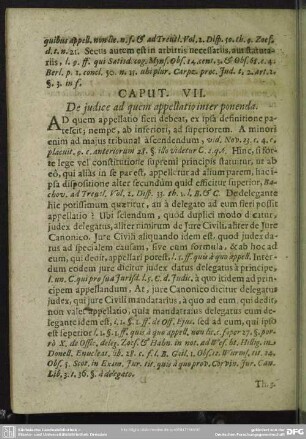 quibus appell. novistr. n. f. & ad Treutl. Vol. 2. Disp. 30. th. 9. Zoes.
d. t. n. 21. Secus autem est in arbitris necessariis, aut statuta-
riis, l. 9. ff. qui Satisd. cog. Myns. Obs. 14. cent. 3. & Obs. 61. c. 4.
Berl. p. 1. concl. 50. n. 25. ubi plur. Carpz. proc. Jud. t. 2. art. 2.
§. 3. in f.
CAPUT. VII.
De judice ad quem appellatio interponenda.
AD quem appellatio fieri debeat, ex ipsa definitione pa-
tescit; nempe, ab inferiori, ad superiorem. A minori
enim ad majus tribunal ascendendum, vid. Nov. 23. c. 4. c.
placuit, 9. c. anteriorum 28. § ibi viderur C. 2. q. 6. Hinc, si for-
te lege vel constitutione supremi principis statuitur, ut ab
eô, qui aliàs in se par est, appelletur ad alium parem, haec i-
psa dispositione alter secundùm quid efficitur superior, Ba-
chov. ad Treutl. Vol. 2. Disp. 31. th. 2. l. B. & C. De delegante
hîc potissimum quaeritur, an à delegato ad eum fieri possit
appellatio? Ubi sciendum, quod duplici modo dicatur,
judex delegatus, alter nimirum de Jure Civili, alter de Jure
Canonico. Jure Civili aliquando idem est, quod judex da-
tus ad specialem causam, sive cum formula, & ab hoc ad
eum, qui dedit, appellari potest.
rum eodem jure dicitur judex datus delegatus à principe,
l. un. C. qui pro sua Jurisd. l. 5. C. d. Judic. à quô itidem ad prin-
cipem appellandum. At, jure Canonico dicitur delegatus
judex, qui jure Civili mandatarius, à quô ad eum, qui dedit,
non valet appellatio, quia mandatarius delegatus cum de-
legante idem est, l. 1. §. 1. ff. de Off. Ejus. sed ad eum, qui ipso
est superior l. 1. §. 1. ff. quis à quo appell. novell. c. super 27. §. por-
rò X. de Offic. deleg. Zoes. & Hahn. in not. ad Wes. ht. Hillig. in 2
Donell. Enucleat. lib. 28. c. f. l. B. Gail. 1. Obs. 11. Wurms. tit. 24.
Obs. 5. Scot. in Exam. Jur. tit. quis à quo prov. Corvin. Jur. Can.
Lib. 3. t. 36. § à delegato.
Th. 9.